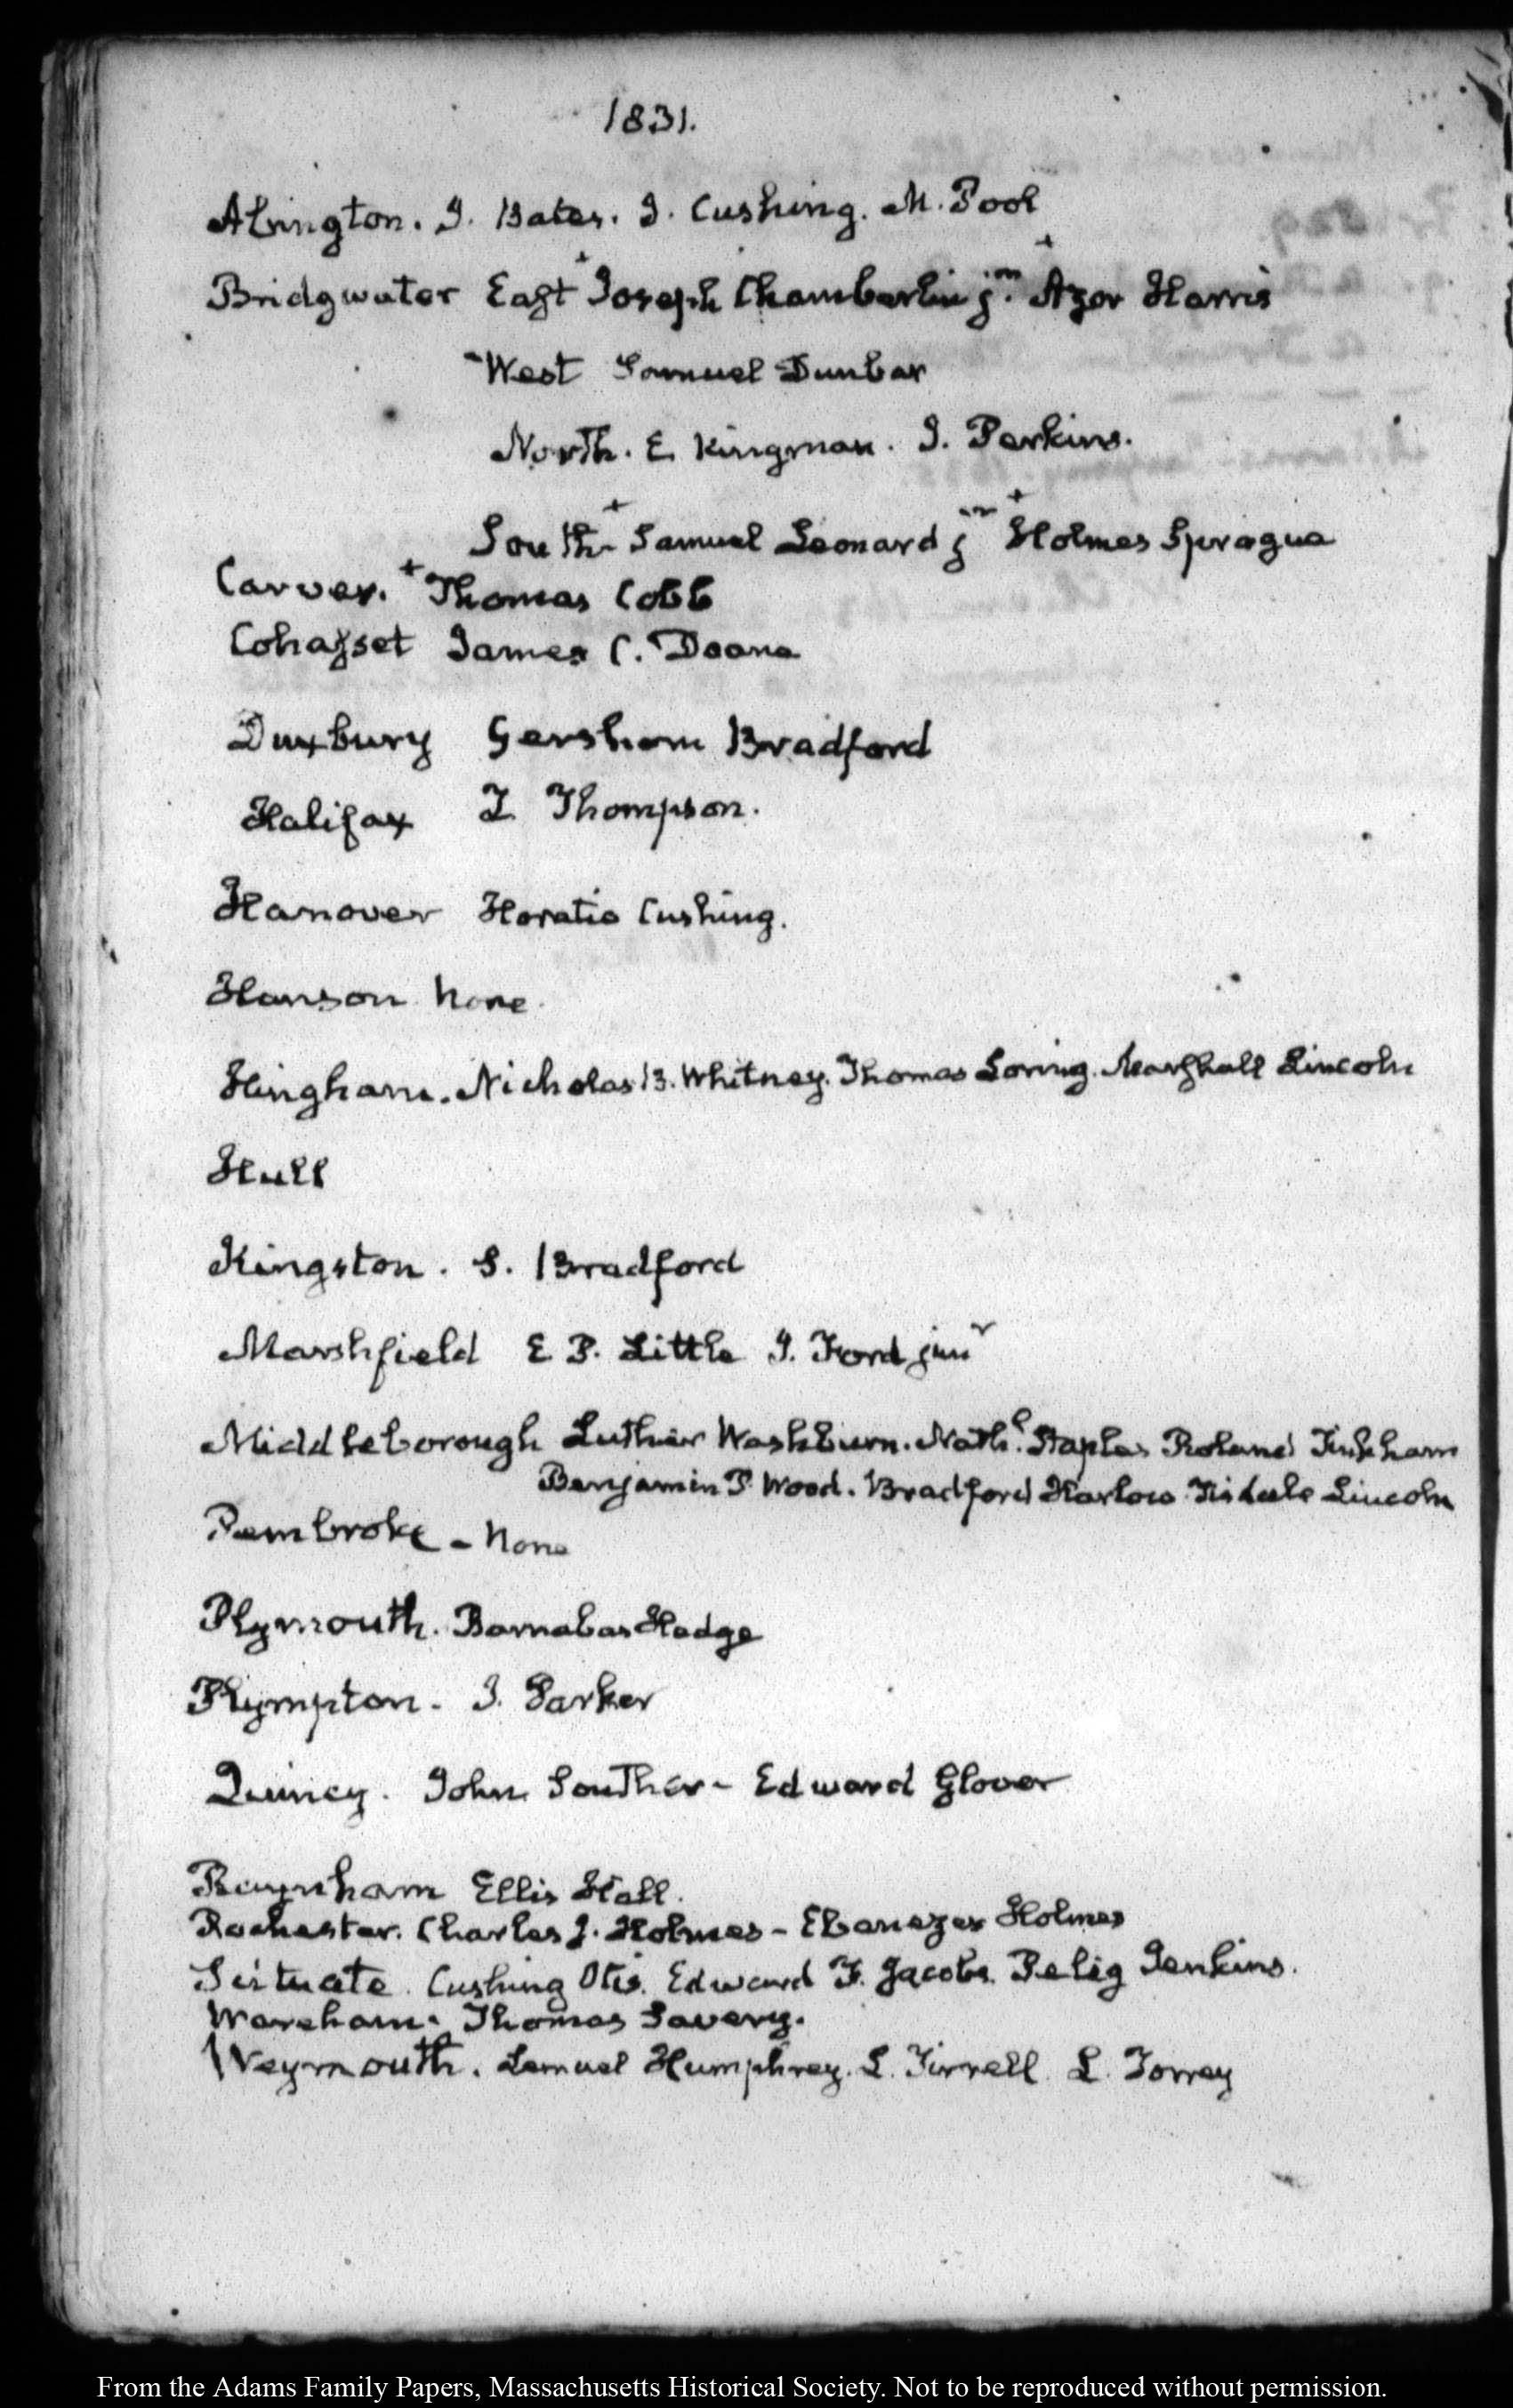 1831.
Abington. J. Bates. J. Cushing. M. Pool
Bridgwater East + Joseph Chamberlin jr. + Azor Harris
West Samuel Dunbar
North. E Kingman. J. Perkins.
South + Samuel Leonard jr + Holmes Sprague
Carver. + Thomas Cobb
Cohasset James C. Doane
Duxbury Gershom Bradford
Halifax Z Thompson.
Hanover Horatio Cushing.
Hanson None
Hingham. Nicholas B. Whitney. Thomas Loring. Marshall Lincoln
Hull
Kingston. S. Bradford
Marshfield E P. Little J. Ford junr
Middleborough Luther Washburn. Nathl. Staples Roland Tinkham
Benjamin P Wood. Bradford Harlow Tisdale Lincoln
Pembroke - None
Plymouth. Barnabas Hedge
Plympton - J. Parker
Quincy. John Souther - Edward Glover
Raynham Ellis Hall.
Rochester. Charles J. Holmes - Ebenezer Holmes
Scituate. Cushing Otis. Edward F. Jacobs. Peleg Jenkins.
Wareham. Thomas Savery.
Weymouth. Lemuel Humphrey. L. Tirrell L. Torrey
From the Adams Family Papers, Massachusetts Historical Society. Not to be reproduced without permission.